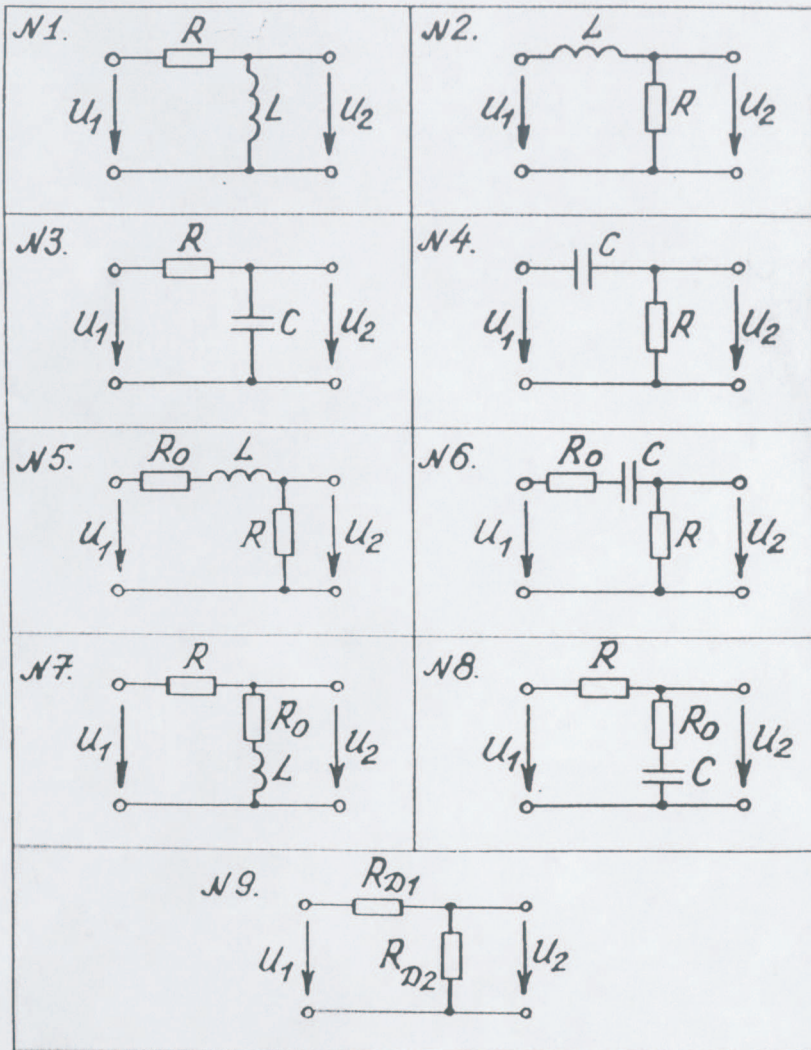 N1.
R
U1
L
U2
N2.
L
U1
R
U2
N3.
R
U1
C
U2
N4.
C
U1
R
U2
N5.
R0 L
U1
R
U2
N6.
R0 C
U1
R
U2
N7.
R
R0
U1
L
U2
N8.
R
R0
U1
C
U2
N9.
RD1
U1
RD2
U2